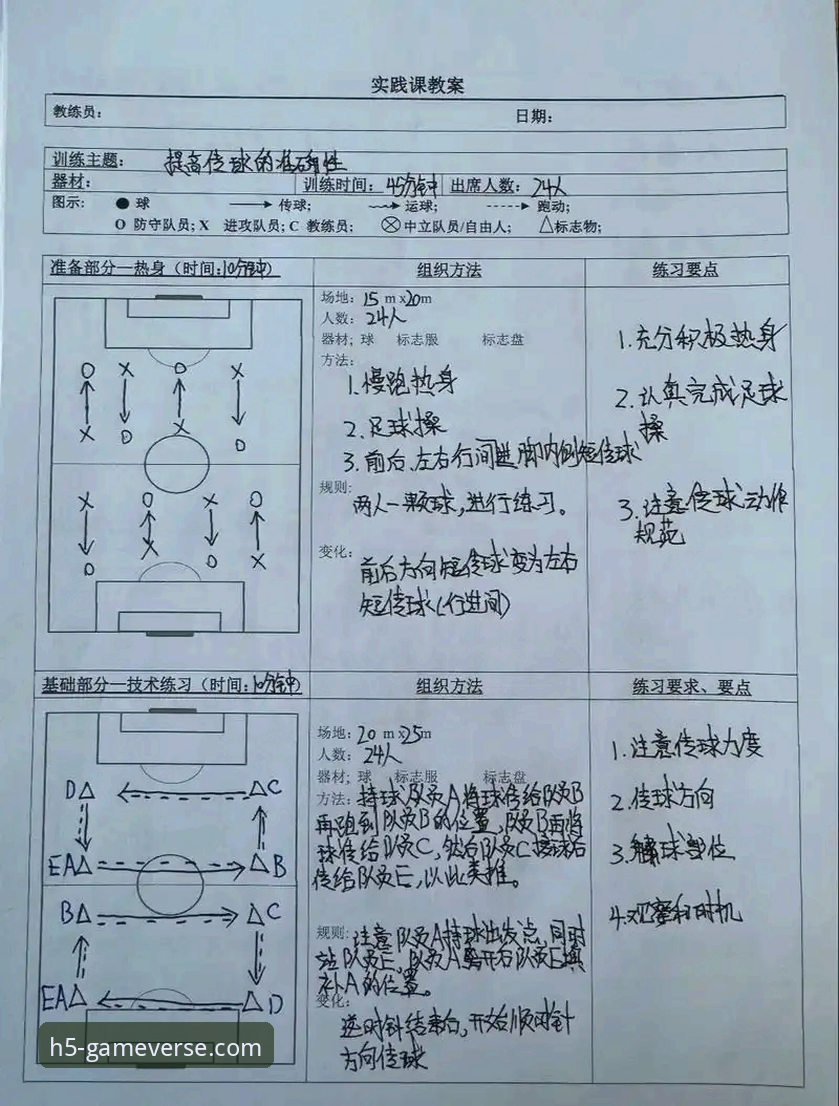 实践课教案
教练员： 日期：
训练主题： 提高传球的准确性
器材： 训练时间：45分钟 出席人数：24人
图示： ● 球 传球； 运球； 跑动；
O 防守队员；X 进攻队员；C 教练员； 中立队员/自由人； △标志物；
准备部分—热身（时间：10分钟） 组织方法 练习要点
场地：15 m x20m
人数：24人
器材；球 标志服 标志盘
方法：
1.慢跑热身
2.足球操
3.前后、左右行间进脚内侧短传球
规则：
两人一颗球，进行练习。
变化：
前后方向短传球变为左右
短传球（行进间）
1.充分积极热身
2.认真完成足球
操
3.注意传球动作
规范
O X O X
X O X O
X O X O
O X O X
基础部分—技术练习（时间：10分钟） 组织方法 练习要求、要点
场地：20 m x25m
人数：24人
器材；球 标志服 标志盘
方法：持球队员A将球传给队员B
再跑到队员B的位置，队员B再将
球传给队员C，然后队员C接球后
传给队员E，以此类推。
规则：注意队员A持球出发点，同时
站队员E，队员A离开后队员E填
补A的位置。
变化：
逆时针结束后，开始顺时针
方向传球
1.注意传球力度
2.传球方向
3.触球部位
4.观察和时机
D△ △C
EA△ △B
B△ △C
EA△ △D
h5-gameverse.com